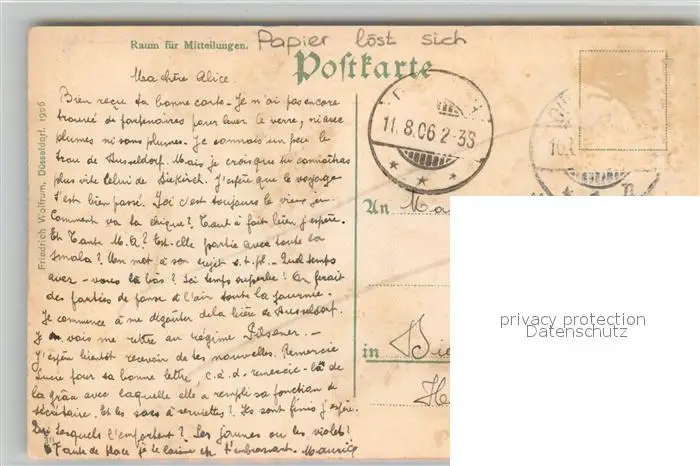 Papier löst sich
Raum für Mitteilungen.
Postkarte
Ma chère Alice.
Bien reçu ta bonne carte. Je n'ai pas encore
trouvé de partenaires pour lever le verre, ni avec
plumes ni sans plumes. Je connais un peu le
trou de Dusseldorf. Mais je crois que tu connaîtras
plus vite celui de Diekirch. J'espère que le voyage
s'est bien passé. Ici c'est toujours le vieux jeu.
Comment va ta chique? Tout à fait bien j'espère.
Et Tante M.A? Est-elle partie avec toute sa
smala? Un mot à son sujet s.t.pl. Quel temps
avez-vous là bas? Ici temps superbe! On ferait
des parties de danse à l'air toute la journée.
Je commence à me dégoûter de la bière de Dusseldorf.
Je vais me mettre au régime Pilsener.
J'espère bientôt recevoir de tes nouvelles. Remercie
Lucie pour sa bonne lettre, c.à.d. remercie-la de
la grâce avec laquelle elle a rempli sa fonction de
secrétaire. Et les sacs à serviettes? Ils sont finis j'espère.
Lesquels l'emportent? Les jaunes ou les violets?
Faute de place je te laisse en t'embrassant. Maurice
Friedrich Wolfrum, Düsseldorf. 1906
11.8.06 2-3S
An
in
privacy protection
Datenschutz